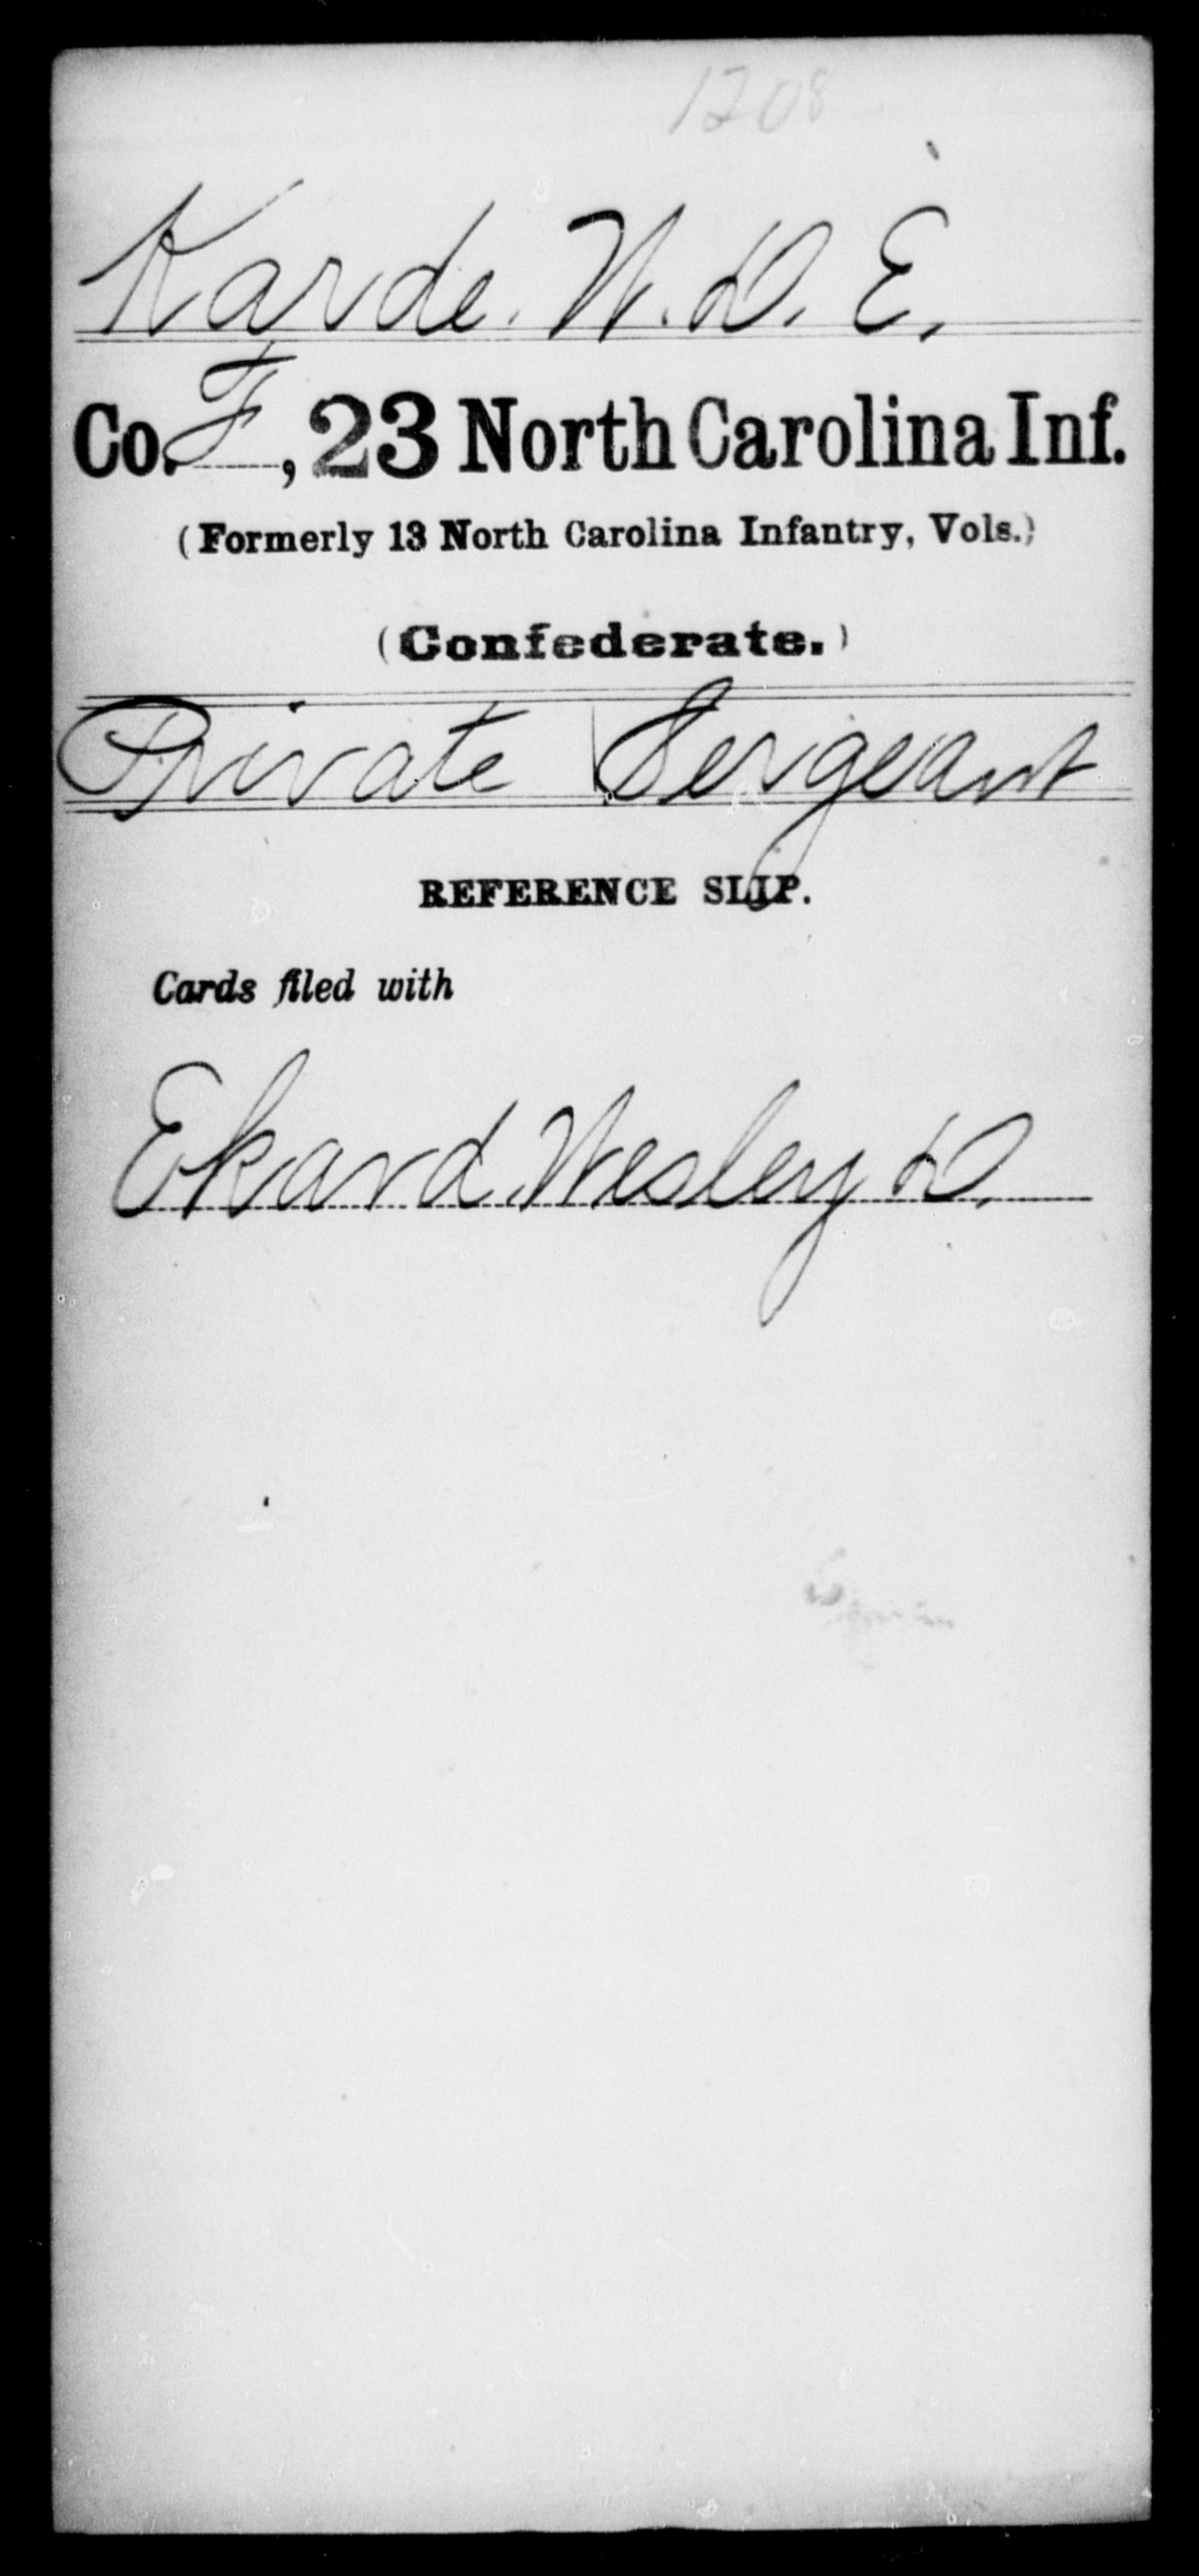 1208
Karde. W. D. E.
Co. F, 23 North Carolina Inf.
(Formerly 13 North Carolina Infantry, Vols.)
(Confederate.)
Private Sergeant
REFERENCE SLIP.
Cards filed with
Ekard, Wesley D.